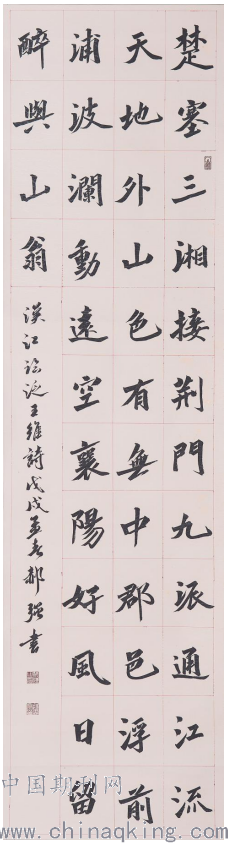 楚塞三湘接荆門九派通江流
天地外山色有無中郡邑浮前
浦波瀾動遠空襄陽好風日留
醉與山翁
漢江临泛王維詩戊戌孟春郝强書
中国期刊网
www.chinaqking.com